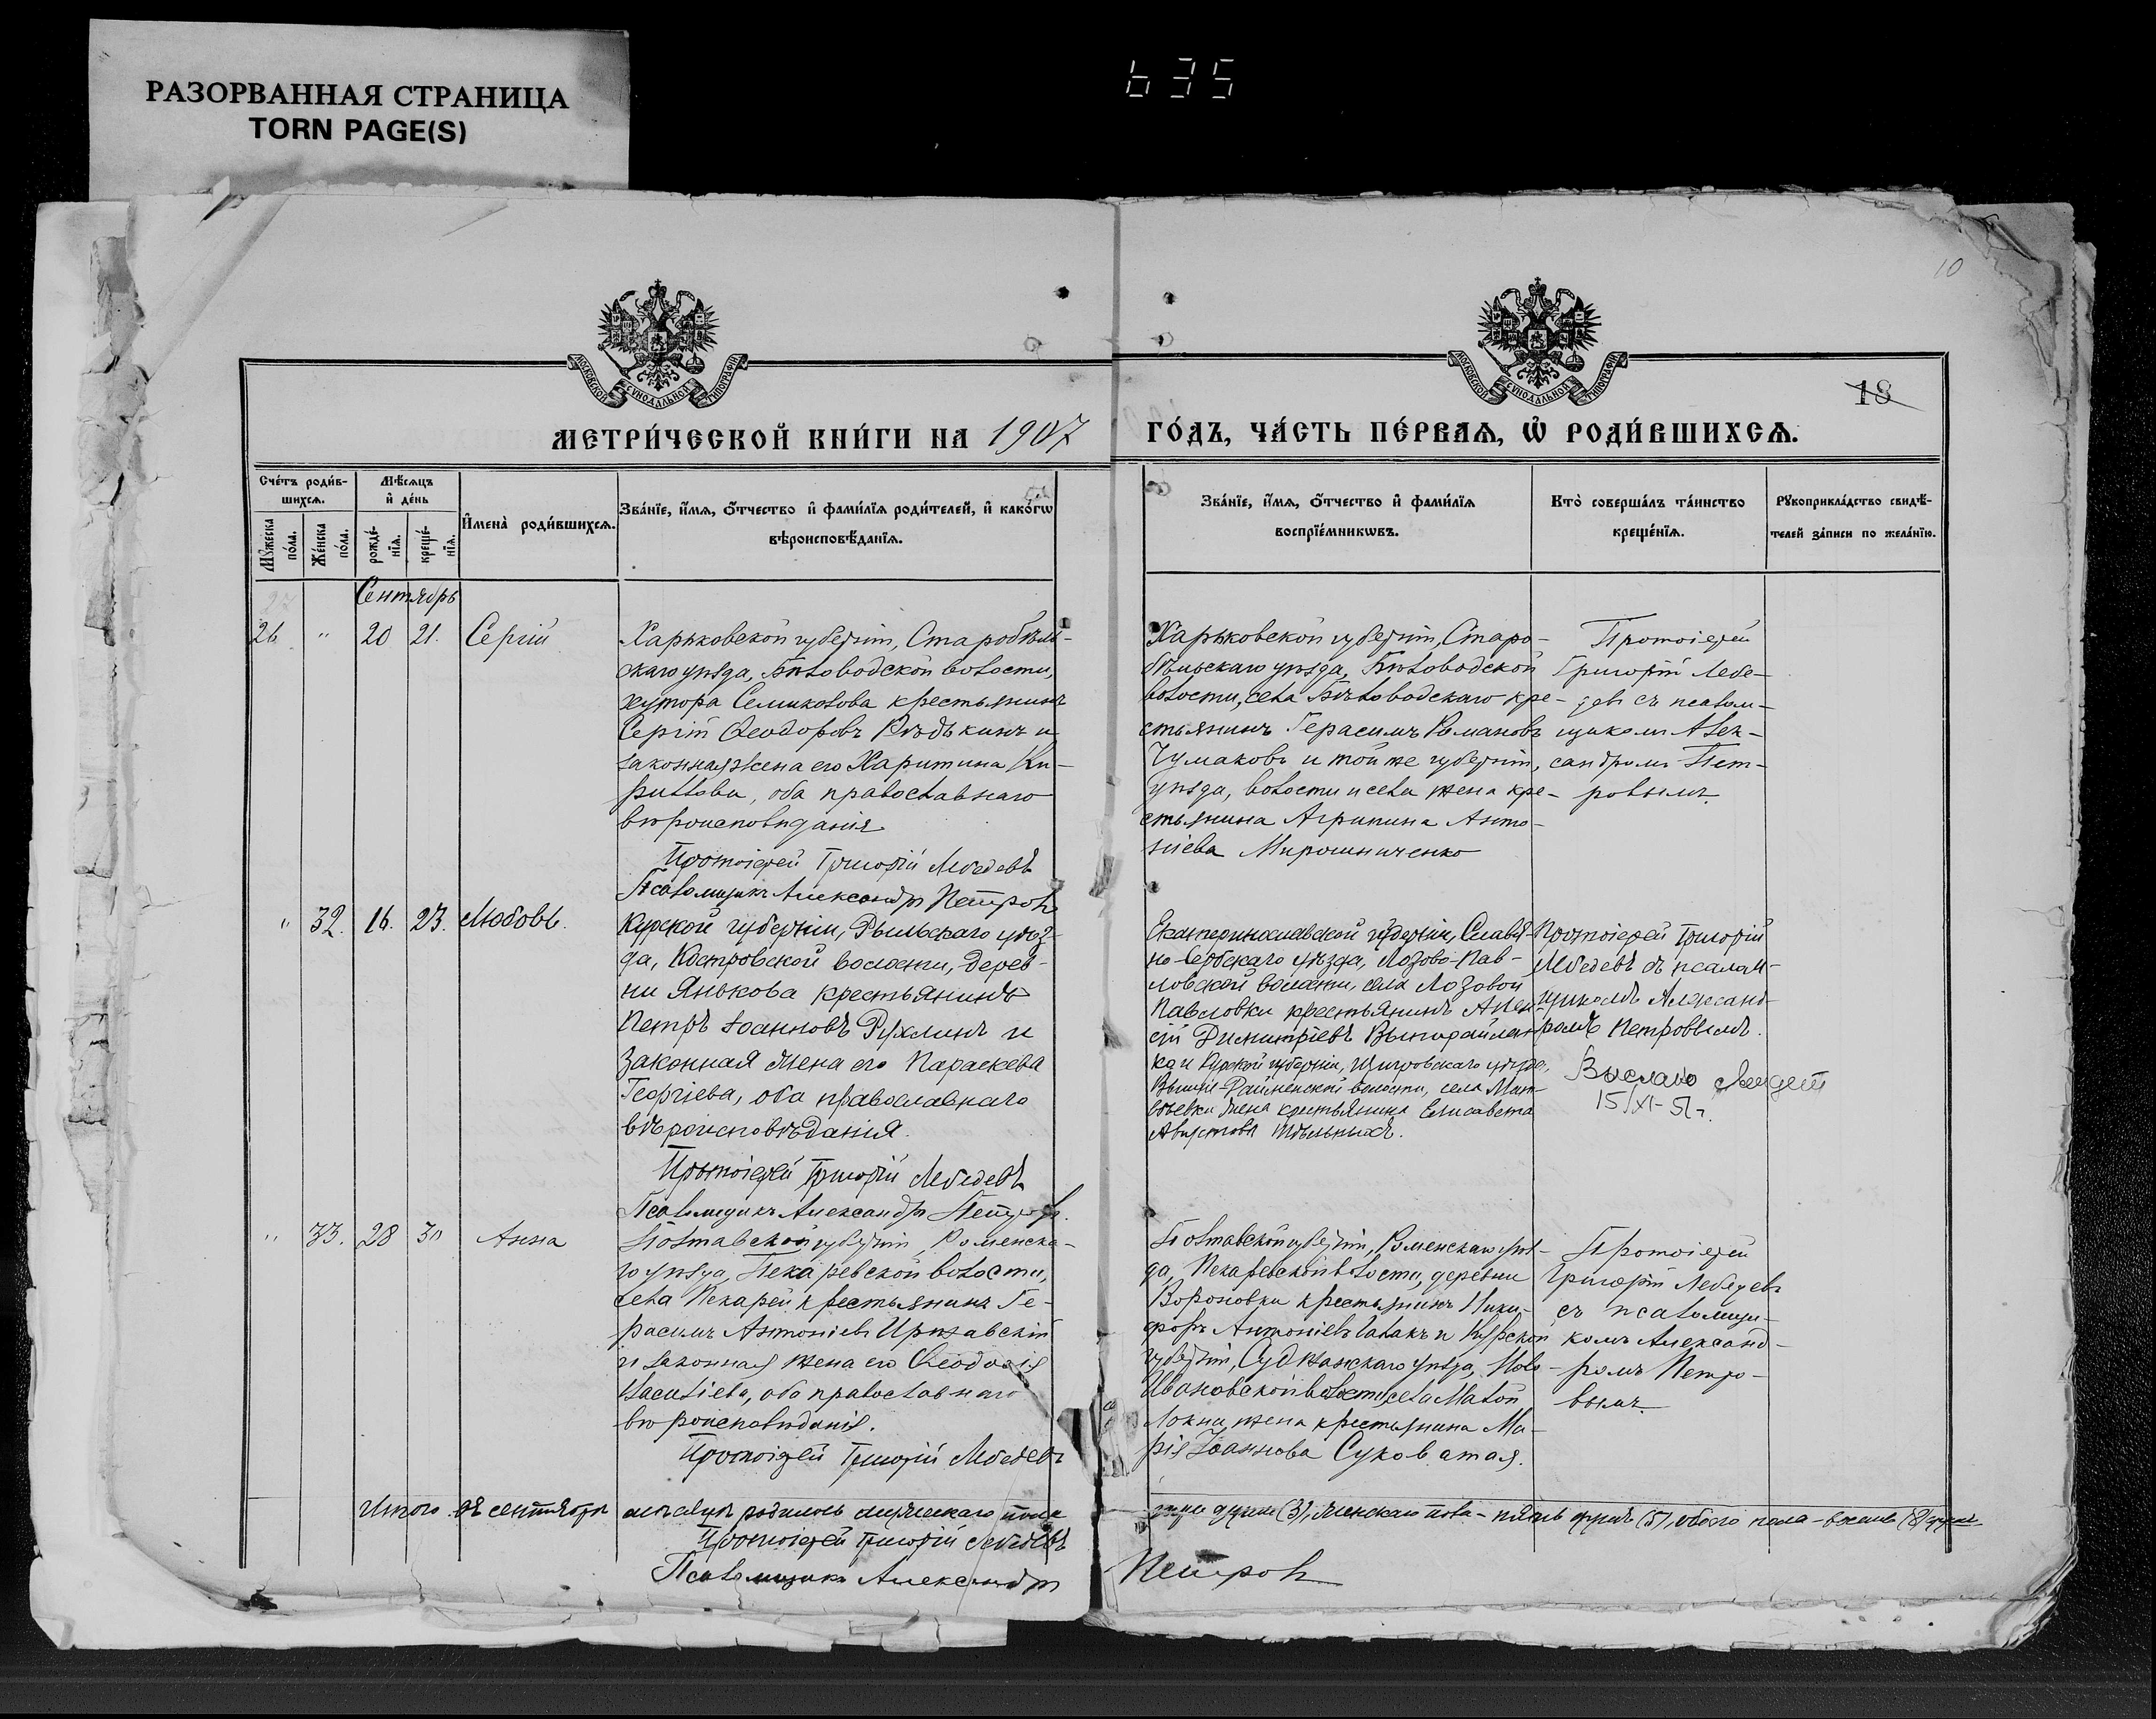 РАЗОРВАННАЯ СТРАНИЦА
TORN PAGE(S)
635
10
МОСКОВСКОЙ СУНОДАЛЬНОЙ ТИПОГРАФІИ
МОСКОВСКОЙ СУНОДАЛЬНОЙ ТИПОГРАФІИ
18
МЕТРИ́ЧЕСКОЙ КНИ́ГИ НА 1907
ГО́ДЪ, ЧА́СТЬ ПЕ́РВАѦ, Ѽ РОДИ́ВШИХСѦ.
Сче́тъ роди́в-
шихсѧ.
Мѣ́сѧцъ
и҆ де́нь
Мꙋ́жеска по́ла.
Же́нска по́ла.
рожде́-
нїѧ.
креще́-
нїѧ.
И҆мена̀ роди́вшихсѧ.
Зва́нїе, и҆́мѧ, ѻ҆́тчество и҆ фами́лїѧ роди́телей, и҆ како́гѡ
вѣроисповѣ́данїѧ.
Зва́нїе, и҆́мѧ, ѻ҆́тчество и҆ фами́лїѧ
воспрїе́мникѡвъ.
Кто̀ соверша́лъ та́инство
креще́нїѧ.
Рꙋкоприкла́дство свидѣ́-
телей за́писи по жела́нїю.
Сентябрь
26 " 20 21. Сергій
Харьковской губерніи, Старобѣль-
скаго уѣзда, Бѣловодской волости,
хутора Семикозова крестьянинъ
Сергій Ѳеодоровъ Рѣдькинъ и
законная жена его Харитина Ки-
риллова, оба православнаго
вѣроисповѣданія
Протоіерей Григорій Лебедевъ
Псаломщикъ Александръ Петровъ
Харьковской губерніи, Старо-
бѣльскаго уѣзда, Бѣловодской
волости, села Бѣловодскаго кре-
стьянинъ Герасимъ Романовъ
Чумаковъ и той же губерніи,
уѣзда, волости и села жена кре-
стьянина Агрипина Анто-
ніева Мирошниченко
Протоіерей
Григорій Лебе-
девъ съ псалом-
щикомъ Алек-
сандромъ Пет-
ровымъ.
" 32. 16. 23. Любовь.
Курской губерніи, Рыльскаго уѣз-
да, Костровской волости, дерев-
ни Янькова крестьянинъ
Петръ Іоанновъ Рухлинъ и
законная жена его Параскева
Георгіева, оба православнаго
вѣроисповѣданія.
Протоіерей Григорій Лебедевъ
Псаломщикъ Александръ Петровъ.
Екатеринославской губерніи, Славя-
но-Сербскаго уѣзда, Лозово-Пав-
ловской волости, села Лозовой
Павловки крестьянинъ Алек-
сій Димитріевъ
ка и Курской губерніи, Щигровскаго уѣзда,
волости, села
жена крестьянина Елисавета
Августова
Протоіерей Григорій
Лебедевъ съ псалом-
щикомъ Александ-
ромъ Петровымъ.
Выслано
15/XI-51 г.
" 33. 28 30 Анна
Полтавской губерніи, Роменска-
го уѣзда, Пекаревской волости,
села Пекарей крестьянинъ Ге-
расимъ Антоніевъ Иржавскій
и законная жена его Ѳеодосія
Василіева, оба православнаго
вѣроисповѣданія.
Протоіерей Григорій Лебедевъ
Полтавской губерніи, Роменскаго уѣз-
да, Пекаревской волости, деревни
Вороновки крестьянинъ Ники-
форъ Антоніевъ Галакъ и Курской
губерніи, Суджанскаго уѣзда, Ново-
Ивановской волости, села Малой
Локни жена крестьянина Ма-
рія Іоаннова Суковатая.
Протоіерей
Григорій Лебедевъ
съ псаломщи-
комъ Александ-
ромъ Петро-
вымъ.
Итого въ сентябрѣ мѣсяцѣ родилось мужескаго пола
три души (3), женскаго пола - пять душъ (5), обоего пола - восемь (8) душъ.
Протоіерей Григорій Лебедевъ
Псаломщикъ Александръ Петровъ